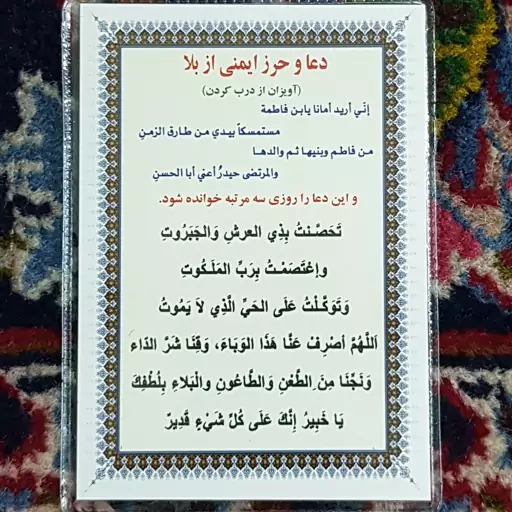 دعا و حرز ایمنی از بلا
(آویزان از درب کردن)
إنّي أريد أمانا يابن فاطمة
مستمسكاً بيدي من طارق الزمنِ
من فاطم وبنيها ثم والدها
والمرتضى حيدرُ أعني أبا الحسنِ
و این دعا را روزی سه مرتبه خوانده شود.
تَحَصَّنتُ بِذِي العرشِ وَالجَبَرُوتِ
وإعْتَصَمْتُ بِرَبِّ المَلَكُوتِ
وَتَوَكَّلْتُ عَلَى الحَيِّ الَّذِي لاَ يَمُوتُ
اَللَّهُمَّ أصْرِفْ عَنَّا هَذَا الوَبَاءَ، وَقِنَا شَرَّ الدَّاء
وَنَجِّنَا مِنَ الطَّعْنِ وَالطَّاعُونِ والْبَلاءِ بِلُطْفِكَ
يَا خَبِيرُ إِنَّكَ عَلَى كُلِّ شَيْءٍ قَدِيرٌ